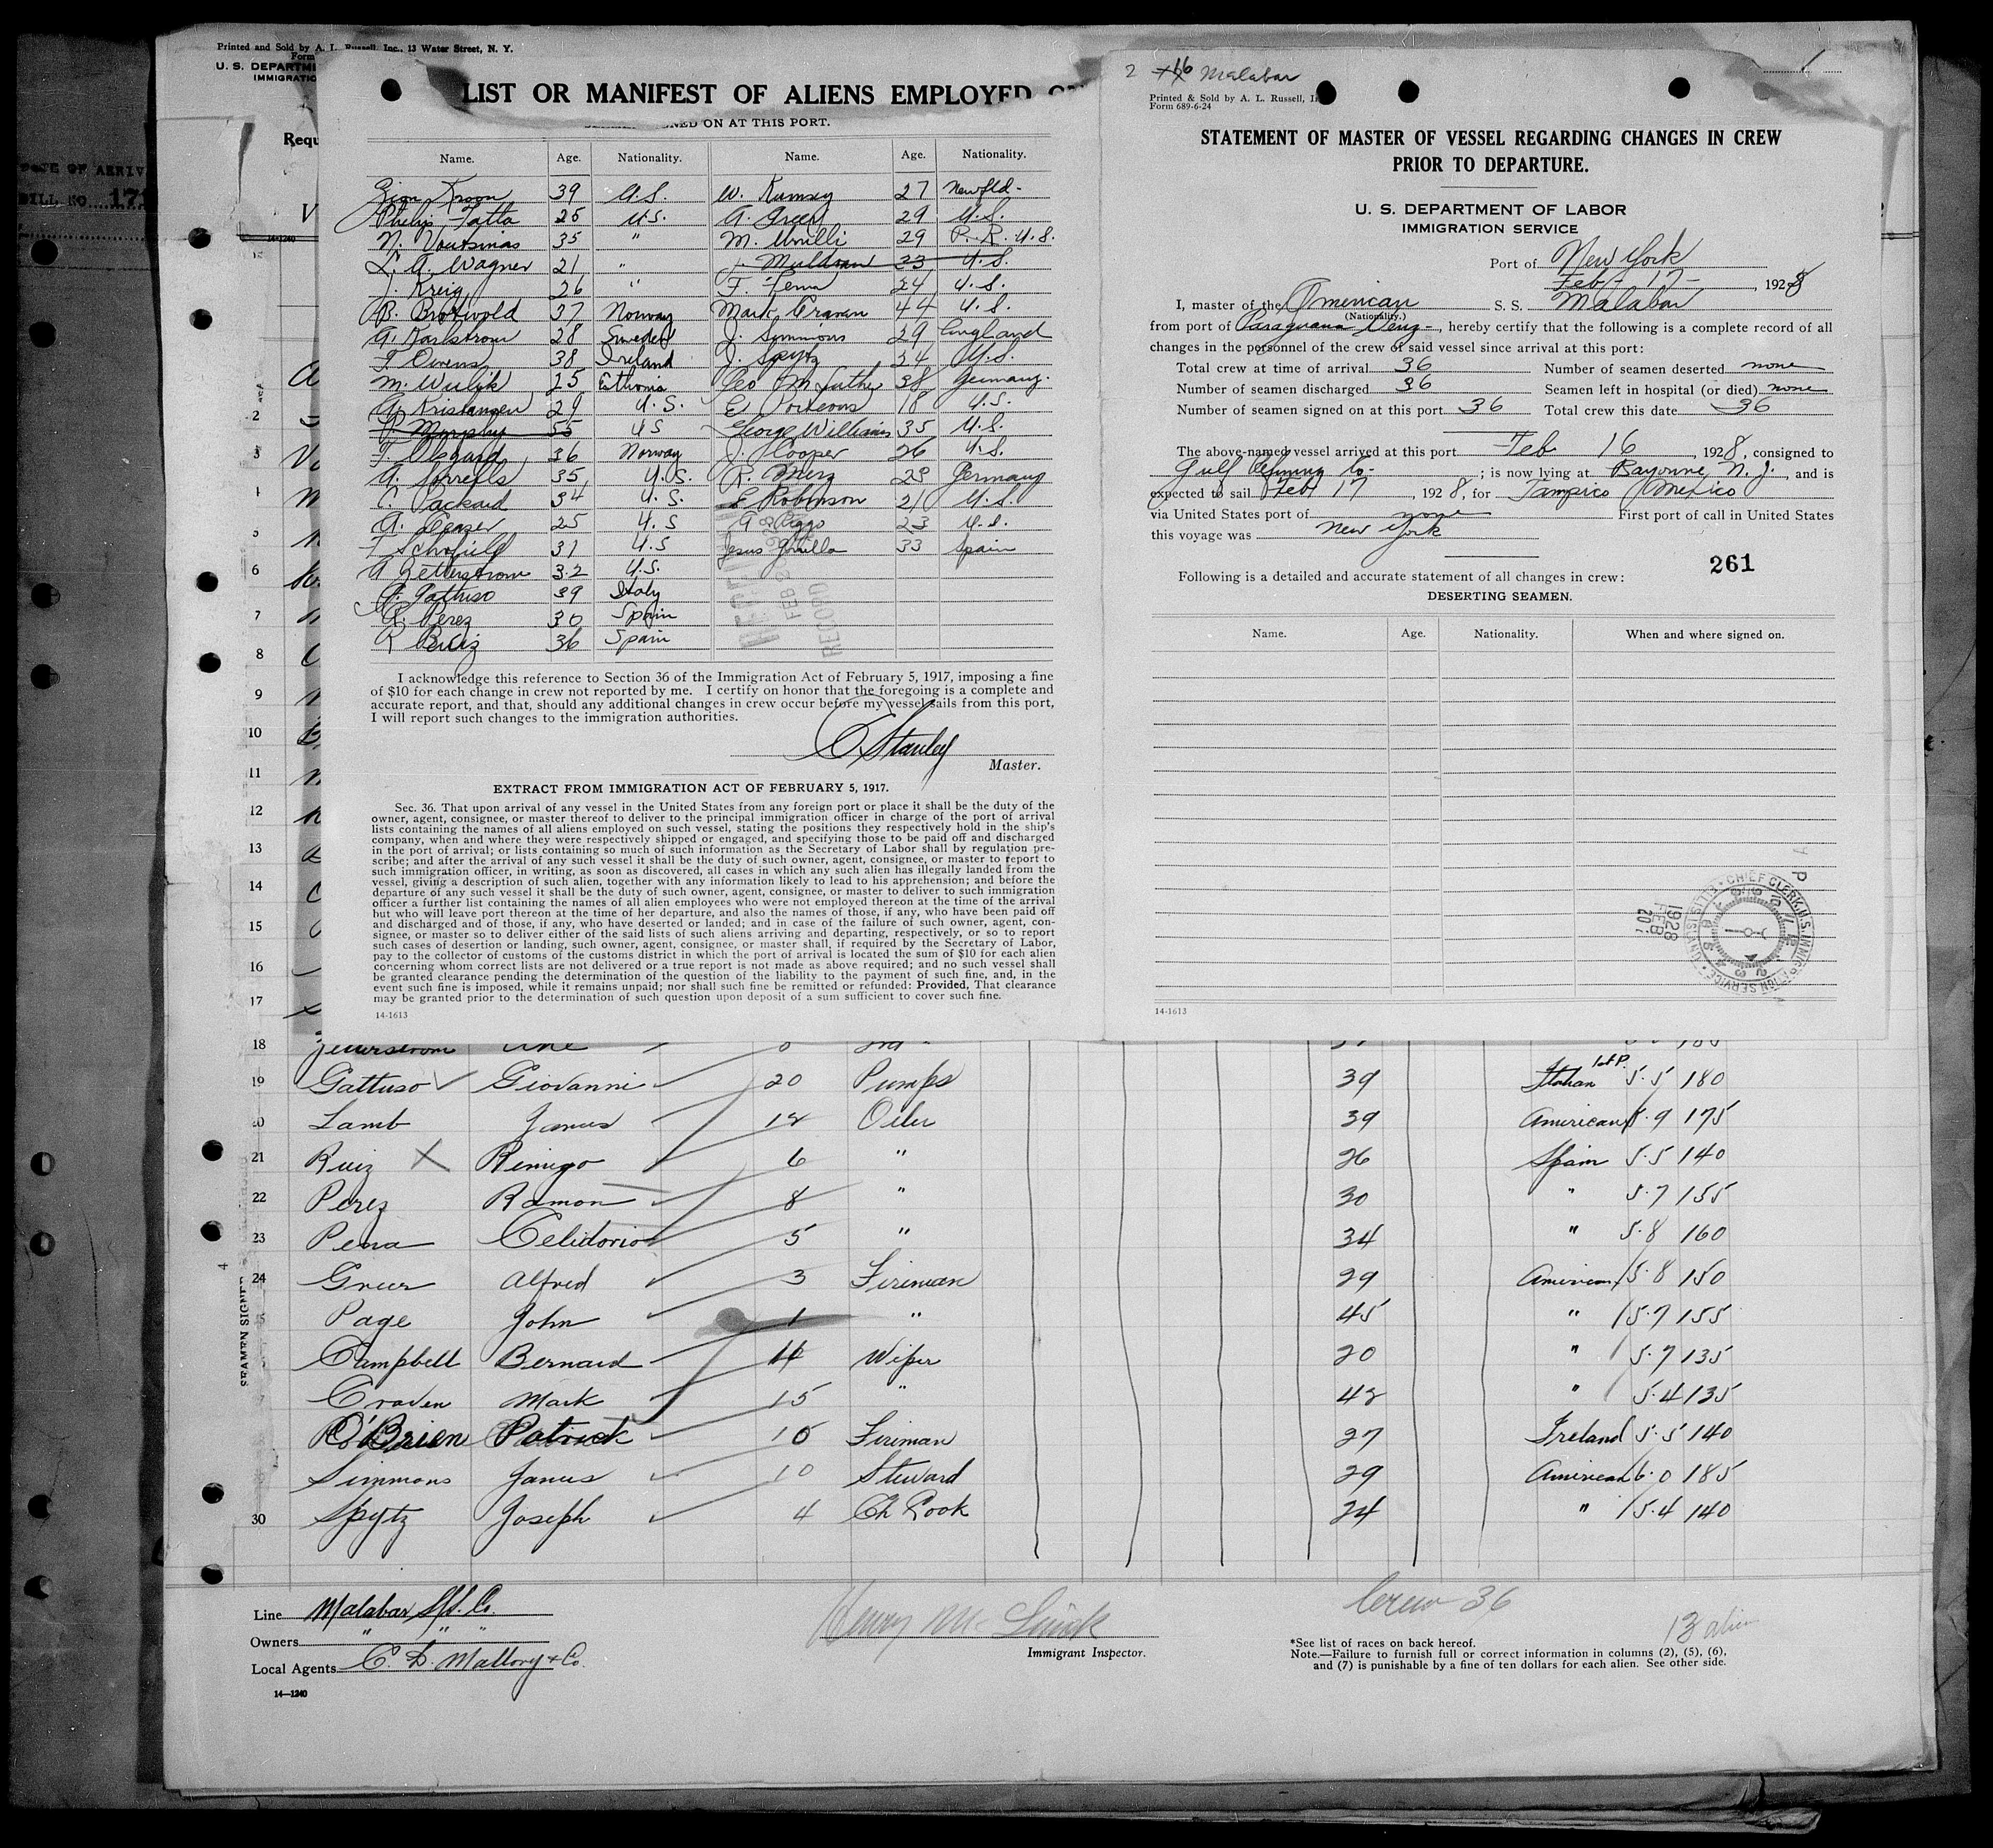 DATE OF ARRIV
BILL NO. 171
Printed and Sold by A. L. Russell, Inc., 13 Water Street, N. Y.
Form
U. S. DEPARTM
IMMIGRATIO
Requ
V
14-1240
LIST OR MANIFEST OF ALIENS EMPLOYED
NED ON AT THIS PORT.
Name. Age. Nationality. Name. Age. Nationality.
Kroon 39 U.S. W. Rumsey 27 Newfld-
Philip Tatta 25 U.S. A. Greer 29 U.S.
N. Voutsinas 35 " M. Urulli 29 P.R. U.S.
L. A. Wagner 21 " J. Muldoon 33 U.S.
J. Kreig 26 " F. Fenn 24 U.S.
B. Brotvold 37 Norway Mark Craven 44 U.S.
A. Karlstrom 28 Sweden J. Simmions 29 England
F. Owens 38 Ireland J. Spytz 24 U.S.
M. Wulik 25 Esthonia Geo M. Luther 38 Germany.
A. Kristangen 29 U.S. E. Porteous 18 U.S.
P. Murphy 55 U S George Williams 35 U.S.
F. Olsgard 36 Norway J. Hooper 26 U.S.
A. Sorrells 35 U.S. R. Merz 23 Germany
C. Packard 34 U.S. E Robinson 21 U.S.
A. 25 U.S A Riggs 23 U.S.
F Schofield 31 U.S Jesus 33 Spain
A Zetterstrom 32 U.S.
G. Gattuso 39 Italy
R. Perez 30 Spain
R Ruiz 36 Spain
FEB
RECORD
I acknowledge this reference to Section 36 of the Immigration Act of February 5, 1917, imposing a fine
of $10 for each change in crew not reported by me. I certify on honor that the foregoing is a complete and
accurate report, and that, should any additional changes in crew occur before my vessel sails from this port,
I will report such changes to the immigration authorities.
C. Stanley
Master.
EXTRACT FROM IMMIGRATION ACT OF FEBRUARY 5, 1917.
Sec. 36. That upon arrival of any vessel in the United States from any foreign port or place it shall be the duty of the
owner, agent, consignee, or master thereof to deliver to the principal immigration officer in charge of the port of arrival
lists containing the names of all aliens employed on such vessel, stating the positions they respectively hold in the ship's
company, when and where they were respectively shipped or engaged, and specifying those to be paid off and discharged
in the port of arrival; or lists containing so much of such information as the Secretary of Labor shall by regulation pre-
scribe; and after the arrival of any such vessel it shall be the duty of such owner, agent, consignee, or master to report to
such immigration officer, in writing, as soon as discovered, all cases in which any such alien has illegally landed from the
vessel, giving a description of such alien, together with any information likely to lead to his apprehension; and before the
departure of any such vessel it shall be the duty of such owner, agent, consignee, or master to deliver to such immigration
officer a further list containing the names of all alien employees who were not employed thereon at the time of the arrival
but who will leave port thereon at the time of her departure, and also the names of those, if any, who have been paid off
and discharged and of those, if any, who have deserted or landed; and in case of the failure of such owner, agent, con-
signee, or master so to deliver either of the said lists of such aliens arriving and departing, respectively, or so to report
such cases of desertion or landing, such owner, agent, consignee, or master shall, if required by the Secretary of Labor,
pay to the collector of customs of the customs district in which the port of arrival is located the sum of $10 for each alien
concerning whom correct lists are not delivered or a true report is not made as above required; and no such vessel shall
be granted clearance pending the determination of the question of the liability to the payment of such fine, and, in the
event such fine is imposed, while it remains unpaid; nor shall such fine be remitted or refunded: Provided, That clearance
may be granted prior to the determination of such question upon deposit of a sum sufficient to cover such fine.
14-1613
2 16 Malabar
Printed & Sold by A. L. Russell, I
Form 689-6-24
STATEMENT OF MASTER OF VESSEL REGARDING CHANGES IN CREW
PRIOR TO DEPARTURE.
U. S. DEPARTMENT OF LABOR
IMMIGRATION SERVICE
Port of New York
Feb - 17 - , 1928
I, master of the American S. S. Malabar
(Nationality.)
from port of Paraguana Venz-, hereby certify that the following is a complete record of all
changes in the personnel of the crew of said vessel since arrival at this port:
Total crew at time of arrival 36 Number of seamen deserted none
Number of seamen discharged 36 Seamen left in hospital (or died) none
Number of seamen signed on at this port 36 Total crew this date 36
The above-named vessel arrived at this port Feb 16, 1928, consigned to
Gulf Refining Co-; is now lying at Bayonne, N. J., and is
expected to sail Feb 17, 1928, for Tampico Mexico
via United States port of none First port of call in United States
this voyage was New York
261
Following is a detailed and accurate statement of all changes in crew:
DESERTING SEAMEN.
Name. Age. Nationality. When and where signed on.
CHIEF CLERK, U.S. IMMIGRATION SERVICE ELLIS ISLAND
1928 FEB 20
14-1613
2
3
4
5
6
7
8
9
10
11
12
13
14
15
16
17
18 Zetterstrom
19 Gattuso Giovanni 20 Pumps 39 Italian 1st P. 5.5 180
20 Lamb James 12 Oiler 39 American 5.9 175
21 Ruiz X Remigo 6 " 26 Spain 5.5 140
22 Perez Ramon 8 " 30 " 5.7 155
23 Pena Celidorio 5 " 34 " 5.8 160
24 Greer Alfred 3 Fireman 29 American 5.8 150
25 Page John 1 " 45 " 5.7 155
Campbell Bernard 4 Wiper 20 " 5.7 135
Craven Mark 15 " 42 " 5.4 135
O'Brien Patrick 10 Fireman 27 Ireland 5.5 140
Simmons James 10 Steward 29 American 6.0 185
30 Spytz Joseph 4 Ch Cook 24 " 5.4 140
SEAMEN SIGNE
Line Malabar SS. Co.
Owners " " "
Local Agents C. D. Mallory & Co.
14-1240
Henry M.
Immigrant Inspector.
Crew 36
13 alien
*See list of races on back hereof.
Note.—Failure to furnish full or correct information in columns (2), (5), (6),
and (7) is punishable by a fine of ten dollars for each alien. See other side.